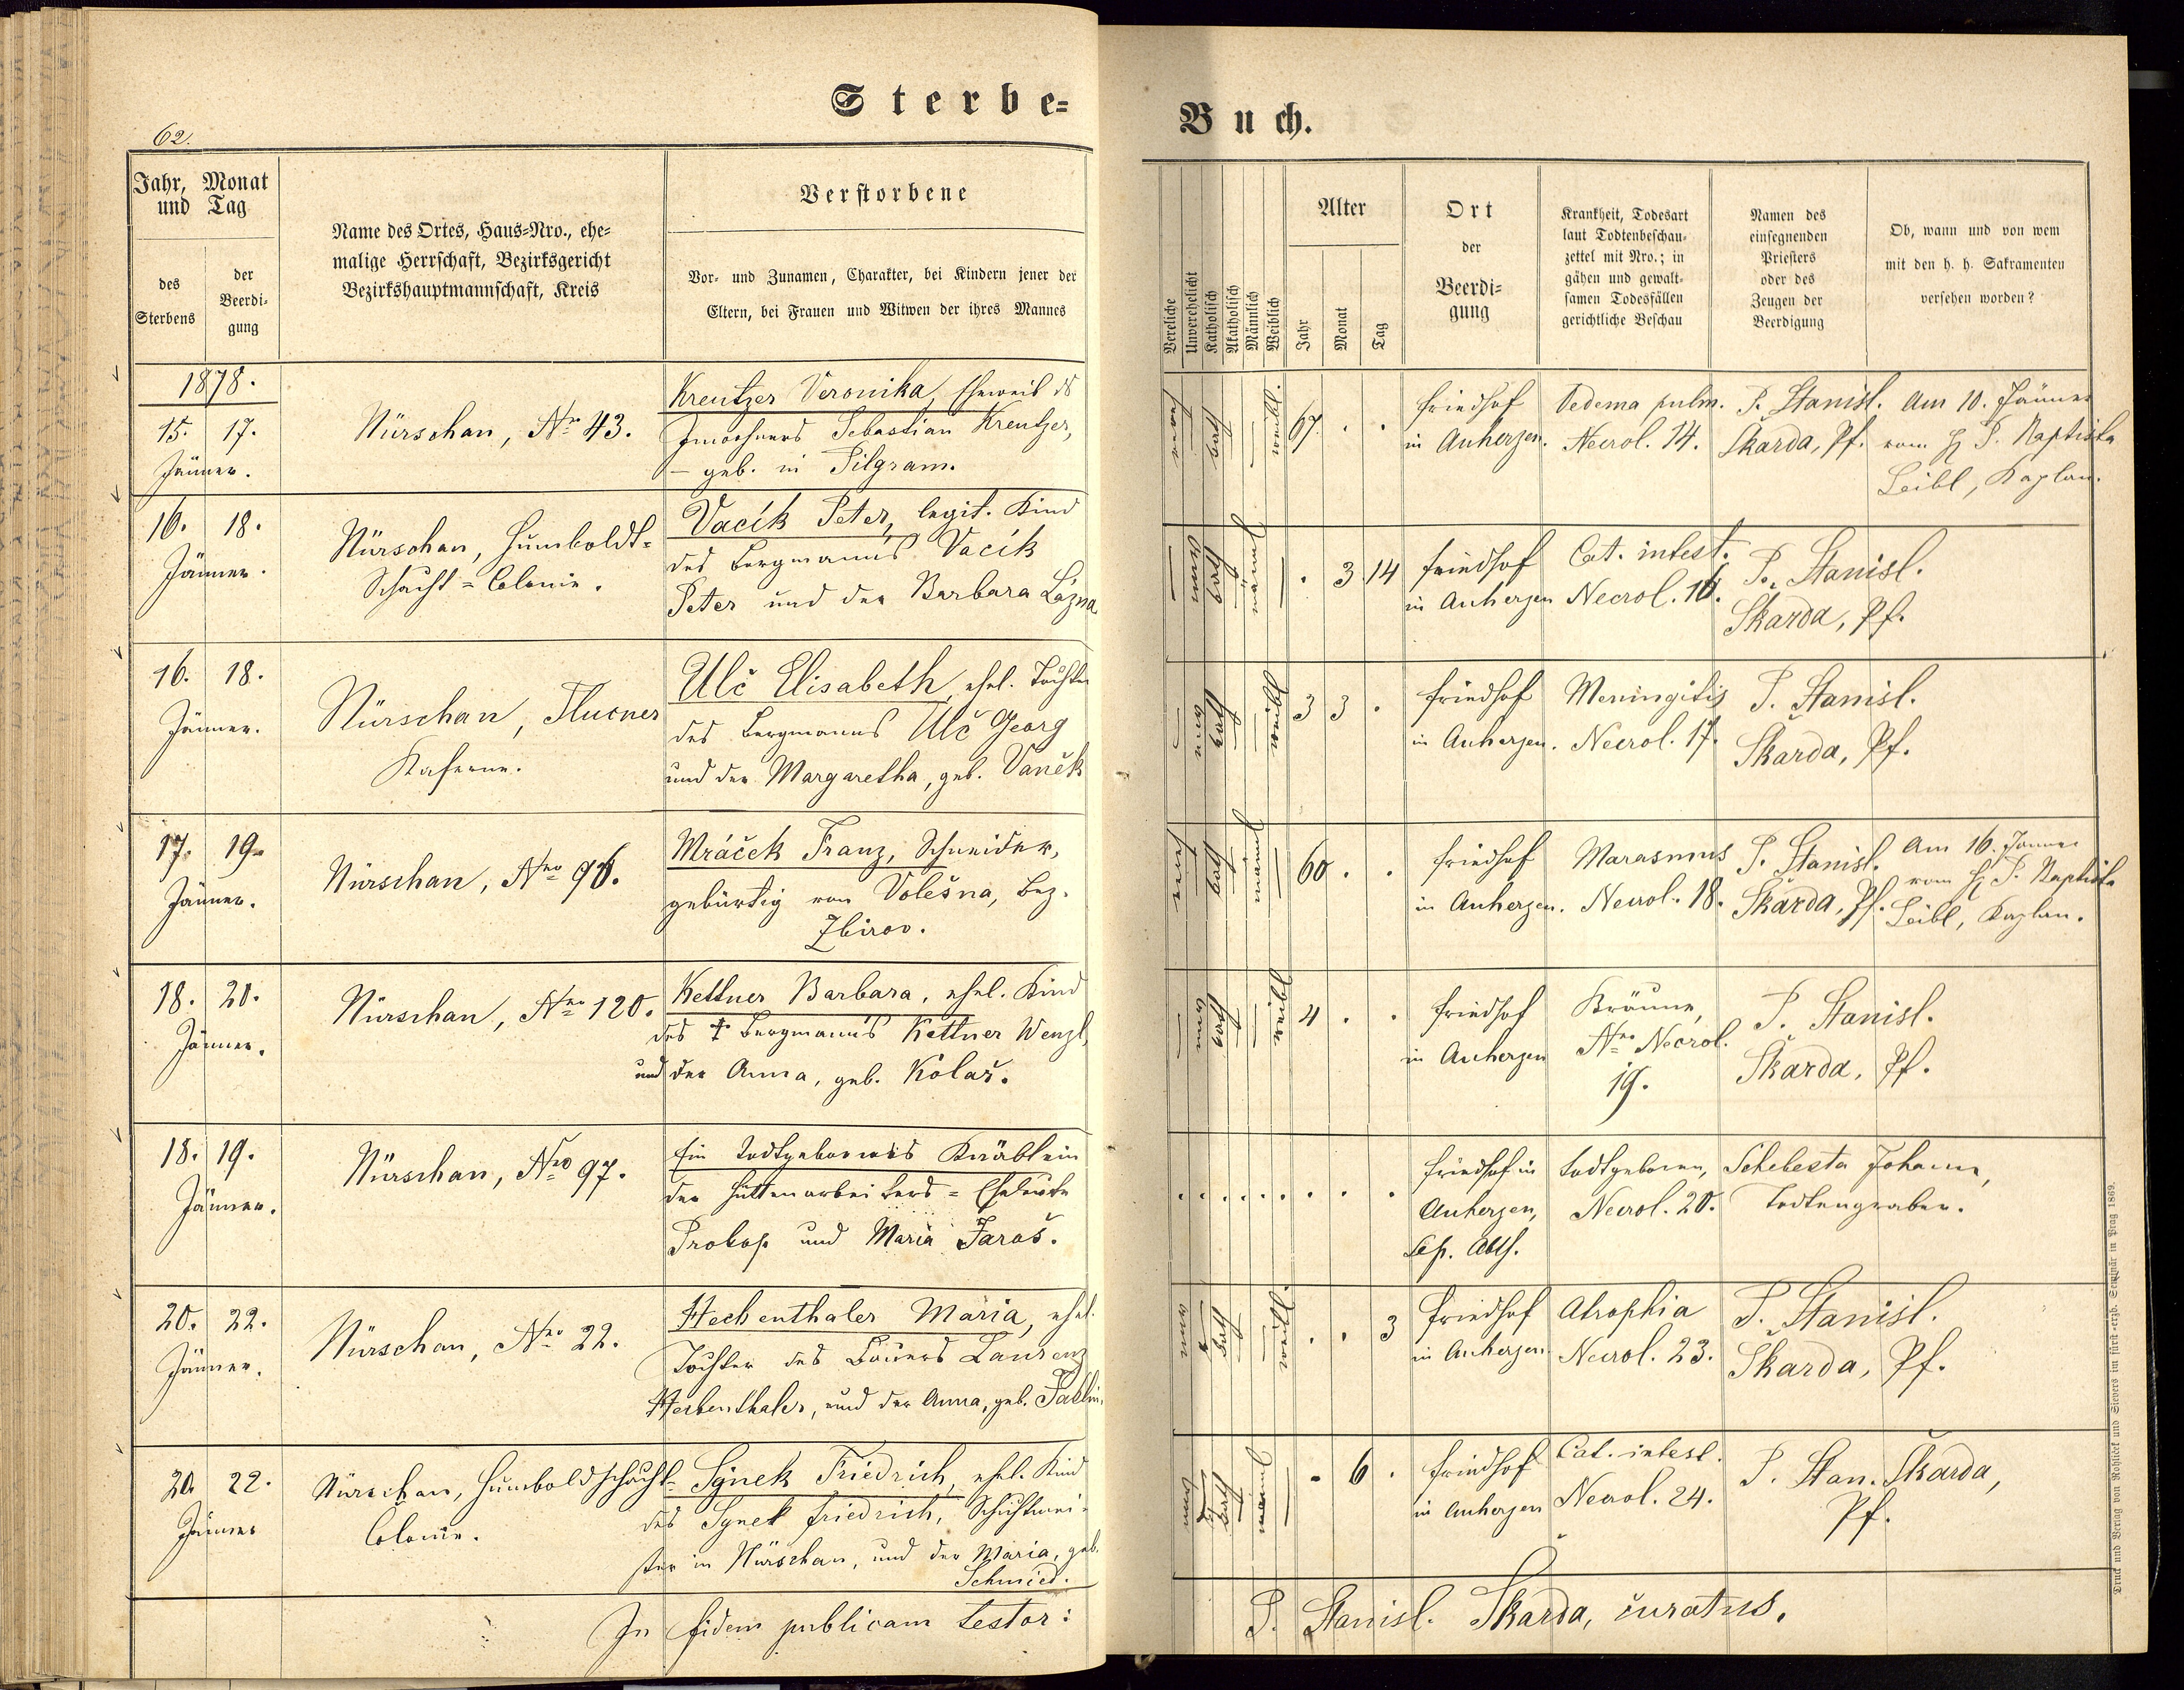 Sterbe=
Buch.
62.
Jahr, Monat
und Tag
des
Sterbens
der
Beerdi=
gung
Name des Ortes, Haus=Nro., ehe=
malige Herrschaft, Bezirksgericht
Bezirkshauptmannschaft, Kreis
Verstorbene
Vor= und Zunamen, Charakter, bei Kindern jener der
Eltern, bei Frauen und Witwen der ihres Mannes
Verelichte
Unverehelicht
Katholisch
Akatholisch
Männlich
Weiblich
Alter
Jahr
Monat
Tag
Ort
der
Beerdi=
gung
Krankheit, Todesart
laut Todtenbeschau=
zettel mit Nro.; in
gähen und gewalt=
samen Todesfällen
gerichtliche Beschau
Namen des
einsegnenden
Priesters
oder des
Zeugen der
Beerdigung
Ob, wann und von wem
mit den h. h. Sakramenten
versehen worden?
1878.
15. 17.
Jänner.
Nürschan, Nr 43.
Kreutzer Veronika, Eheweib ds
Inwohners Sebastian Kreutzer,
– geb. in Pilgram.
67 . .
Friedhof
in Auherzen.
Oedema pulm.
Necrol. 14.
P. Stanisl.
Škarda, Pf.
Am 10. Jänner
vom H P. Baptista
Leibl, Kaplan.
16. 18.
Jänner.
Nürschan, Humboldt=
Schacht=Colonie.
Vacík Peter, legit. Kind
des Bergmanns Vacík
Peter und der Barbara Lázna
. 3 14
Friedhof
in Auherzen
Cat. intest.
Necrol. 16.
P. Stanisl.
Škarda, Pf.
16. 18.
Jänner.
Nürschan, Tlucner
Kaserne.
Ulč Elisabeth, ehel. Tochter
des Bergmanns Ulč Georg
und der Margaretha, geb. Vaněk
3 3 .
Friedhof
in Auherzen.
Meningitis
Necrol. 17.
P. Stanisl.
Škarda, Pf.
17. 19.
Jänner.
Nürschan, Nro 96.
Mráček Franz, Schneider,
gebürtig von Volešna, Bez.
Zbirov.
60 . .
Friedhof
in Auherzen.
Marasmus
Necrol. 18.
P. Stanisl.
Škarda, Pf.
Am 16. Jänner
vom H P. Baptista
Leibl, Kaplan.
18. 20.
Jänner.
Nürschan, Nro 120.
Kettner Barbara, ehel. Kind
des † Bergmanns Kettner Wenzl,
und der Anna, geb. Kolař.
4 . .
Friedhof
in Auherzen
Bräune,
Nro Necrol.
19.
P. Stanisl.
Škarda, Pf.
18. 19.
Jänner.
Nürschan, Nro 97.
Ein todtgebornes Knäblein
der Hüttenarbeiters=Eheleute
Prokop und Maria Jaroš.
. . . . . . . . .
Friedhof in
Auherzen,
Sep. Abth.
todtgeboren,
Necrol. 20.
Schebesta Johann,
Todtengraber.
20. 22.
Jänner.
Nürschan, Nro 22.
Hechenthaler Maria, ehel.
Tochter des Bauers Laurenz
Hechenthaler, und der Anna, geb.
. . 3
Friedhof
in Auherzen
Atrophia
Necrol. 23.
P. Stanisl.
Škarda, Pf.
20. 22.
Jänner
Nürschan, Humboldschacht=
Colonie.
Synek Friedrich, ehel. Kind
des Synek Friedrich, Schichtmei=
ster in Nürschan, und der Maria, geb.
Schmied.
. 6 .
Friedhof
in Auherzen
Cat. intest.
Necrol. 24.
P. Stan. Škarda,
Pf.
In fidem publicam testor:
P. Stanisl. Škarda, curatus.
Druck und Verlag von Rohliček und Sievers im fürst-erzb. Seminär in Prag 1869.